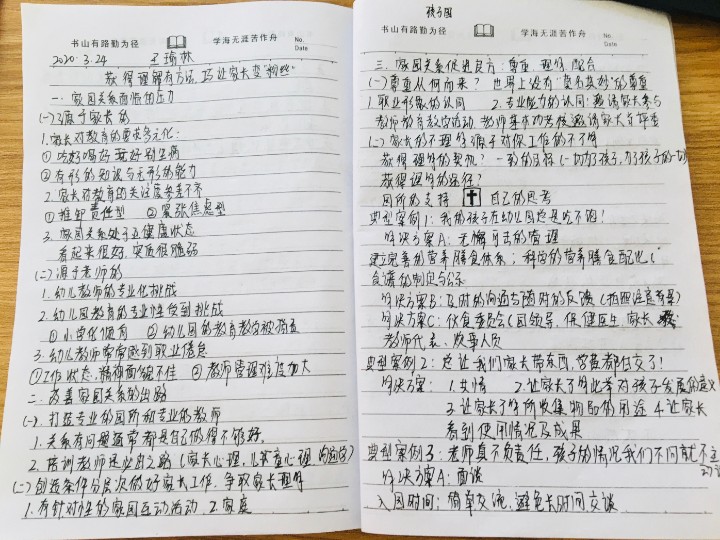 书山有路勤为径 学海无涯苦作舟 No.
Date
2020.3.24 王瑜林
获得理解有方法,巧让家长变"粉丝"
一、家园关系面临的压力
(一)源于家长的
1.家长对教育的要求多元化:
①吃好喝好玩好别生病
②有形的知识与无形的能力
2.家长对教育的关注度参差不齐
①推卸责任型 ②紧张焦虑型
3.家园关系处于亚健康状态
看起来很好,实质很脆弱
(二)源于老师的
1.幼儿教师的专业化挑战
2.幼儿园教育的专业性受到挑战
①小学化倾向 ②幼儿园的教育教学被
3.幼儿教师常常感到职业倦怠
①工作状态,精神面貌不佳 ②教师管理难度加大
二、改善家园关系的出路
(一)打造专业的园所和专业的教师
1.关系有问题通常都是自己做得不够好。
2.培训教师是必由之路(家长心理,儿童心理,
(二)创造条件分层次做好家长工作,争取家长理解
1.有针对性的家园互动活动 2.家庭
孩子图
书山有路勤为径 学海无涯苦作舟 No.
Date
三、家园关系促进良方:尊重、理解、配合
(一)尊重从何而来?世界上没有"莫名其妙"的尊重
1.职业形象的认同 2.专业能力的认同:邀请家长参与
教师教育教学活动,教师基本功考核邀请家长当评委
(二)家长的不理解源于对你工作的不了解
获得理解的契机?一致的目标(一切为了孩子,为了孩子的一切)
获得理解的途径?
园所的支持 自己的思考
典型案例1:我的孩子在幼儿园总是吃不饱!
解决方案A:无懈可击的管理
建立完善的营养膳食体系;科学的营养膳食配比(
食谱的制定与公示
解决方案B:及时的沟通与随时的反馈(拍照注意背景)
解决方案C:伙食委员会(园领导、保健医生、家长
教师代表、炊事人员
典型案例2:总让我们家长带东西,学费都白交了!
解决方案: 1.共情 2.让家长了解此举对孩子发展的意义
3.让家长了解所收集物品的用途 4.让家长
看到使用情况及成果
典型案例3:老师真不负责任,孩子的情况我们不问就不主
动
解决方案A:面谈
入园时间:简单交流,避免长时间交谈